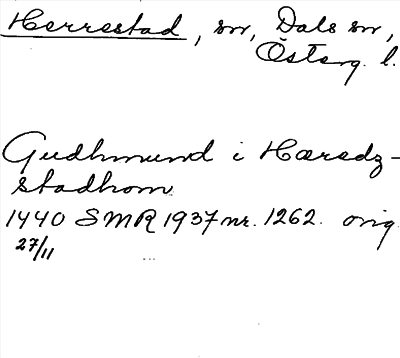 Herrestad, sn, Dals sn,
Österg. l.
Gudhmund i Hæredz-
stadhom
1440 SMR 1937 nr. 1262. orig
27/11